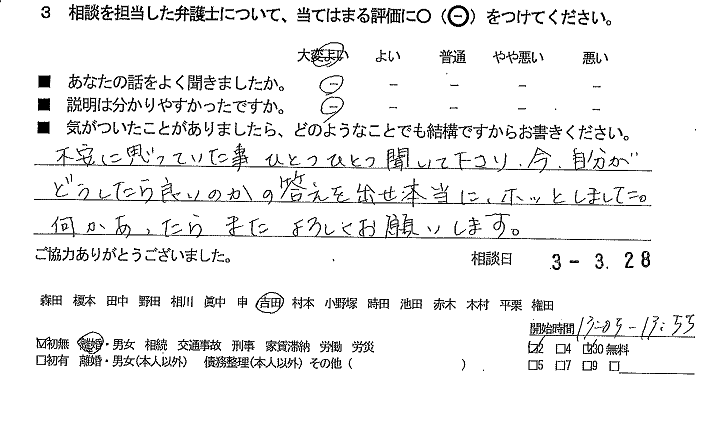 3 相談を担当した弁護士について、当てはまる評価に〇(⊖)をつけてください。
大変よい よい 普通 やや悪い 悪い
■ あなたの話をよく聞きましたか。 － － － － －
■ 説明は分かりやすかったですか。 － － － － －
■ 気がついたことがありましたら、どのようなことでも結構ですからお書きください。
不安に思っていた事 ひとつひとつ聞いて下さり、今、自分が
どうしたら良いのかの答えを出せ本当に、ホッとしました。
何かあったら また よろしくお願いします。
ご協力ありがとうございました。 相談日 3－3.28
森田 榎本 田中 野田 相川 眞中 申 吉田 村本 小野塚 時田 池田 赤木 木村 平栗 権田
開始時間 13:05－13:55
☑初無 離婚・男女 相続 交通事故 刑事 家賃滞納 労働 労災 ☑2 □4 ☑30 無料
□初有 離婚・男女(本人以外) 債務整理(本人以外) その他( ) □5 □7 □9 □